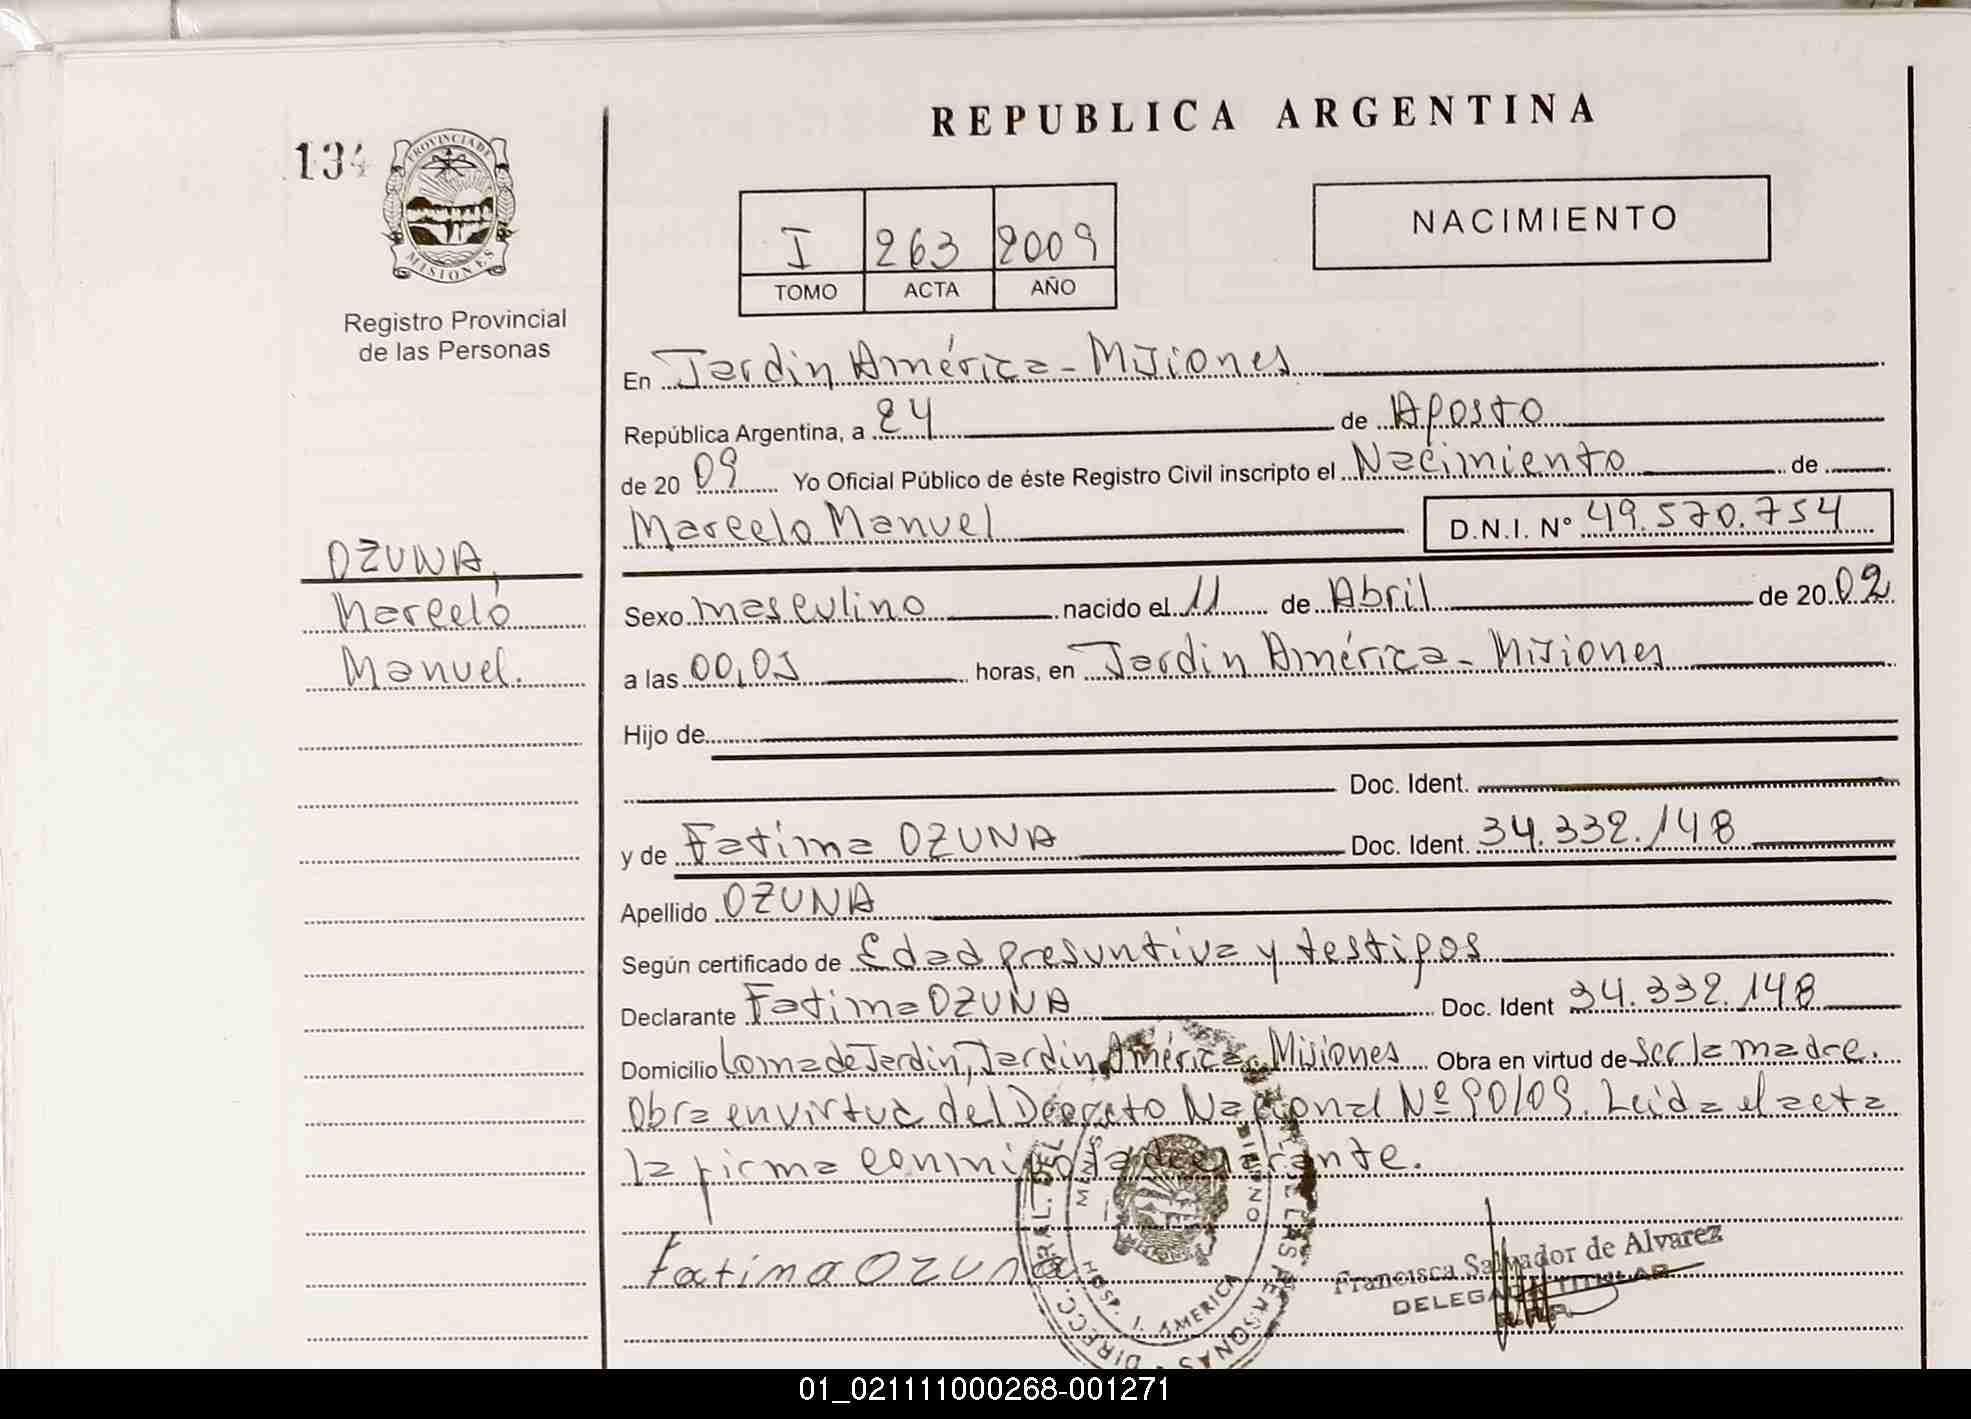 REPUBLICA ARGENTINA
134
PROVINCIA DE
MISIONES
Registro Provincial
de las Personas
I 263 2009
TOMO ACTA AÑO
NACIMIENTO
OZUNA,
Marcelo
Manuel.
En Jardin América - Misiones
República Argentina, a 24 de Agosto
de 20 09 Yo Oficial Público de éste Registro Civil inscripto el Nacimiento de
Marcelo Manuel D.N.I. N° 49.570.754
Sexo masculino nacido el 11 de Abril de 20 02
a las 00,05 horas, en Jardin América - Misiones
Hijo de
Doc. Ident.
y de Fatima OZUNA Doc. Ident. 34.332.148
Apellido OZUNA
Según certificado de Edad presuntiva y testigos
Declarante Fatima OZUNA Doc. Ident 34.332.148
Domicilio Loma de Jardin, Jardin América - Misiones Obra en virtud de ser la madre.
Obra en virtud del Decreto Nacional Nº 90/09. Leida el acta
la firma conmigo la declarante.
Fatima OZUNA
DIRECC. GRAL. DEL DE LAS PERSONAS
HOSP. J. AMERICA
Francisca Salvador de Alvarez
DELEGADA TITULAR
01_021111000268-001271